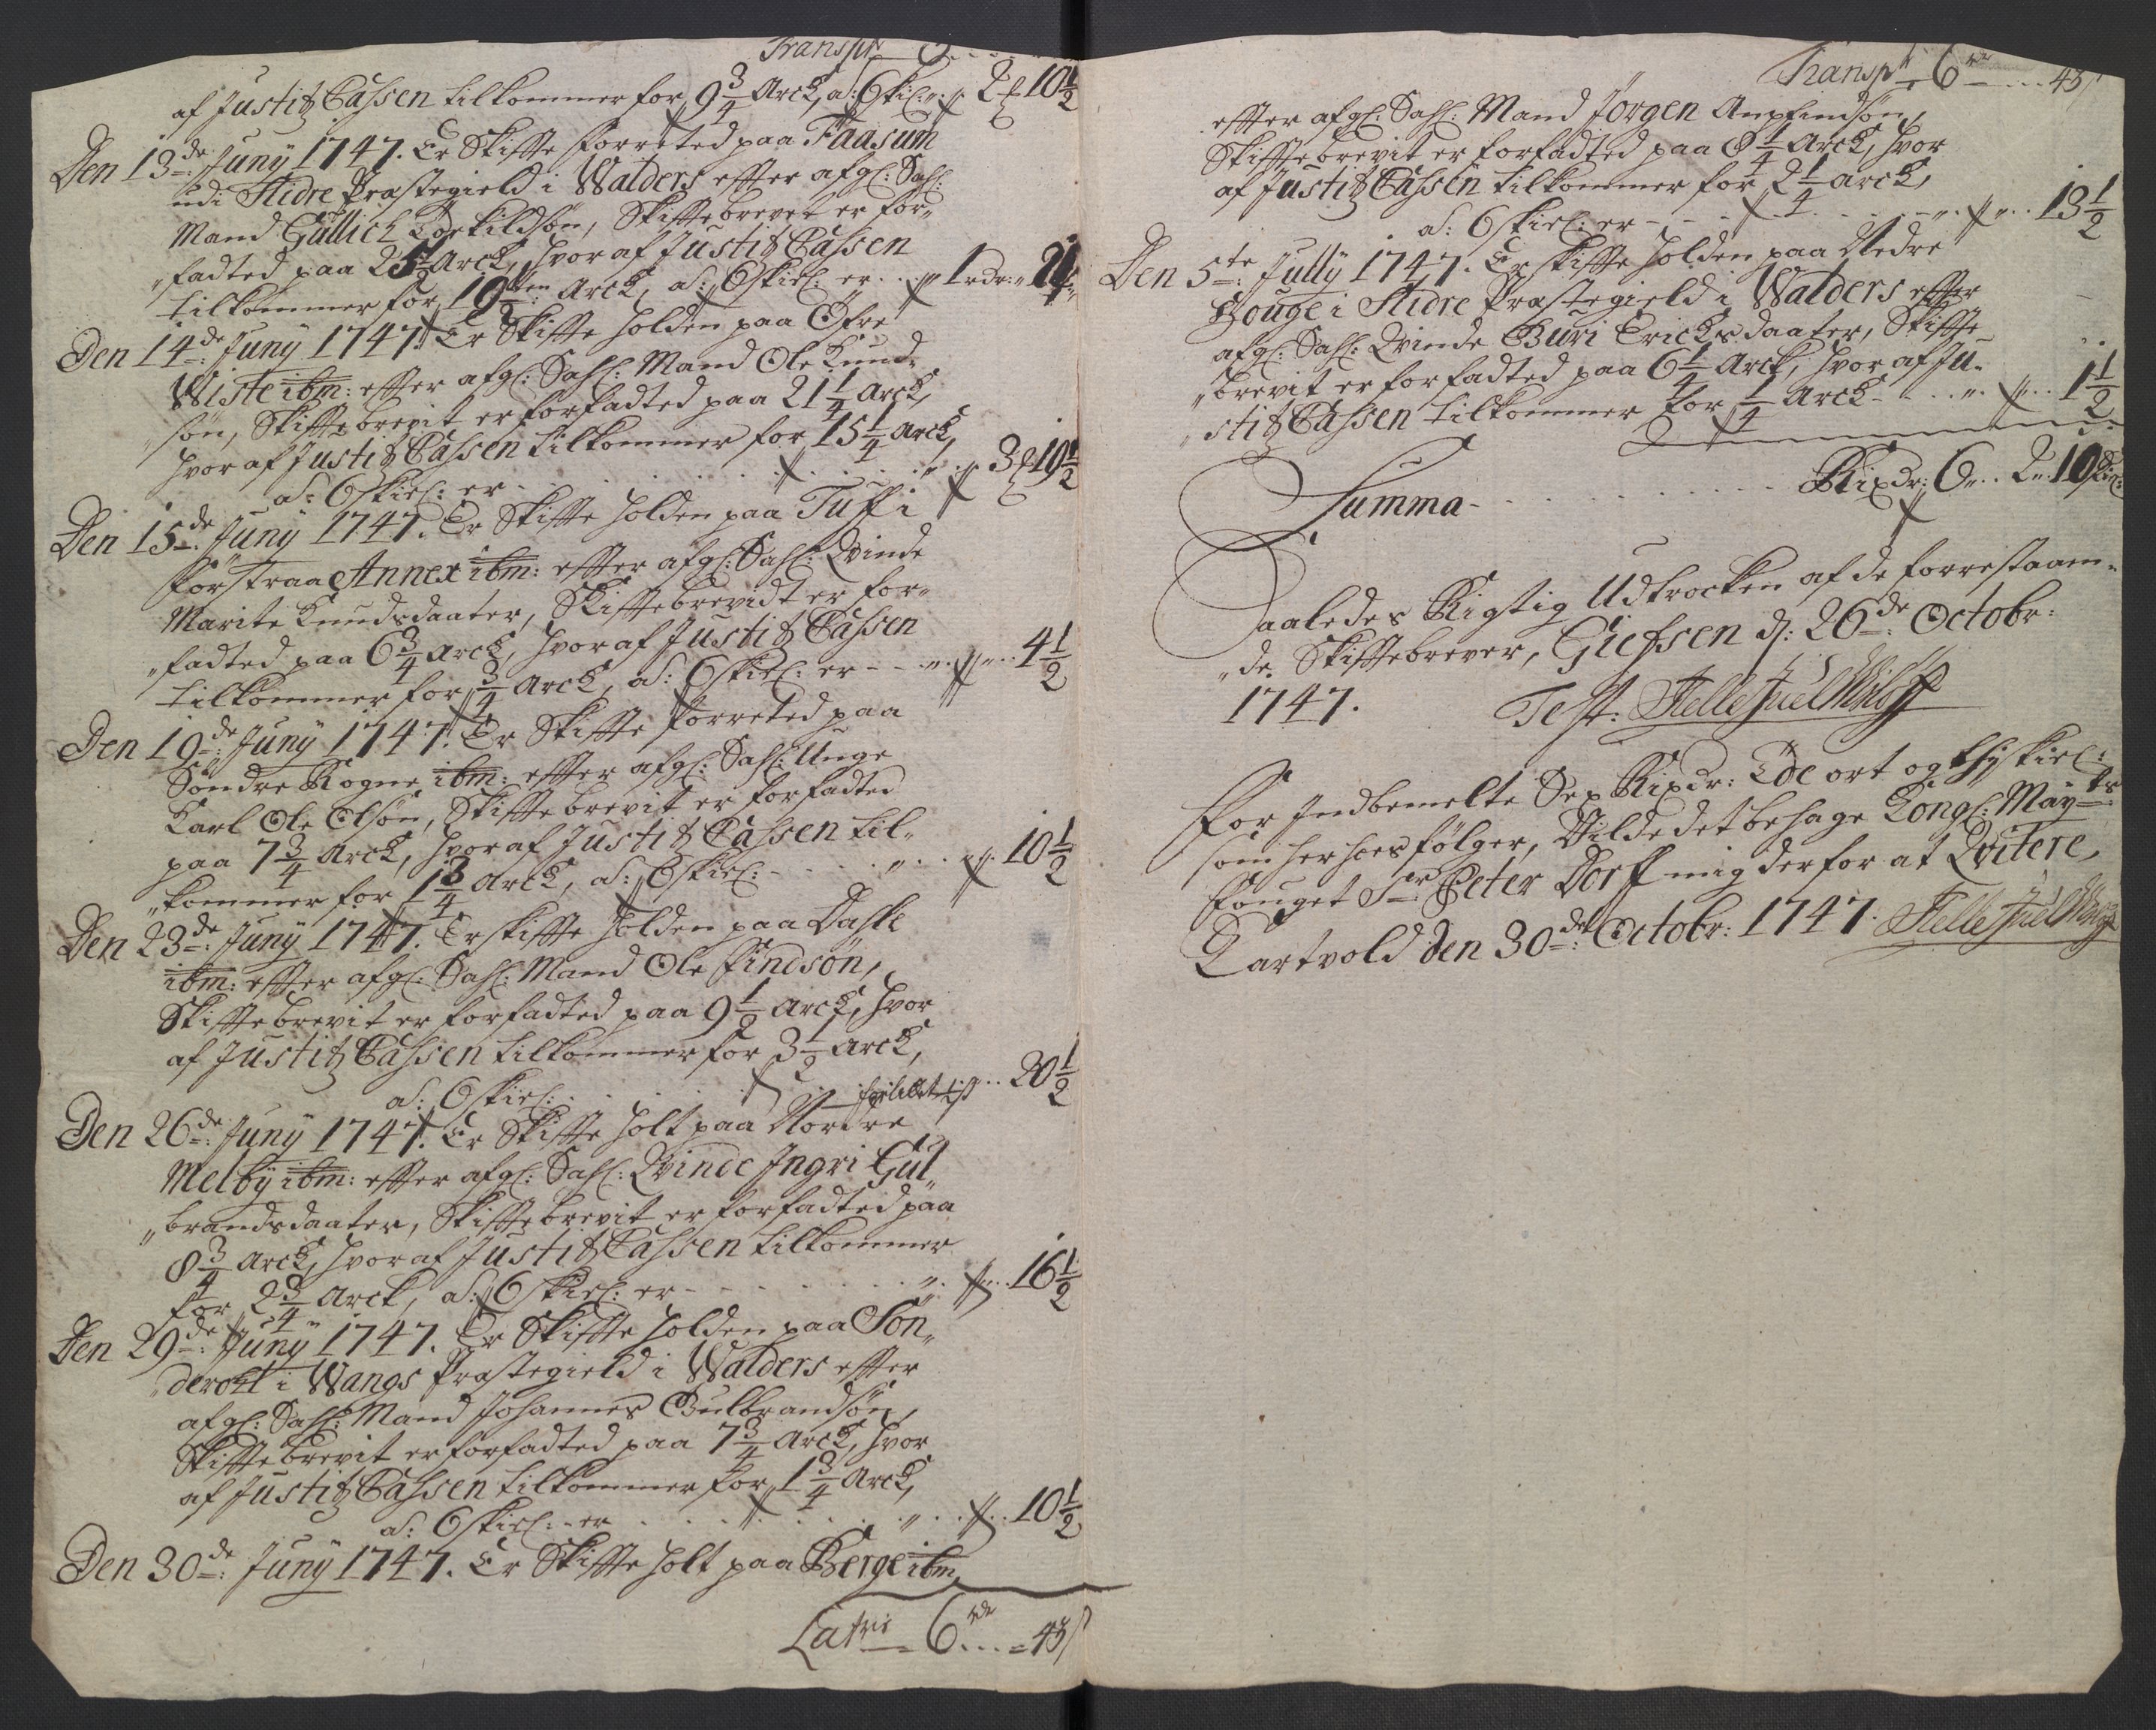 Transpt
af Justitz Cassen tilkommer for 9 3/4 Arck, a: 6 skil: " 2 10 1/2
Den 13de: Juny 1747. Er Skifte forretted paa Faasum
udi Slidre Præstegield i Walders efter afgl: Sahl:
Mand Gullich Torkildsøn, Skiftebrevet er for„
„fadted paa 25 Arck, hvoraf Justitz Cassen
tilkommer for 19ten Arck, a: 6 skil: er 1 rdr:
Den 14de: Juny 1747. Er Skifte holden paa Øfre
Wiste ibm: efter afgl: Sahl: Mand Ole Knud„
„søn, Skiftebrevit er forfadted paa 21 1/4 Arck,
hvoraf Justitz Cassen tilkommer for 15 1/4 Arck,
a: 6 skil: er 3 19 1/2
Den 15de: Juny 1747. Er Skifte holden paa Tuff i
forstraa Annex ibm: efter afgl: Sahl: Qvinde
Marite Knudsdaater, Skiftebrevidt er for„
„fadted paa 6 3/4 Arck, hvoraf Justitz Cassen
tilkommer for 3/4 Arck, a: 6 skil: er 4 1/2
Den 19de: Juny 1747. Er Skifte forreted paa
Søndre Rogne ibm: efter afgl: Sahl: Unge
Karl Ole Olsøn, Skiftebrevit er forfadted
paa 7 3/4 Arck, hvoraf Justitz Cassen til„
„kommer for 1 3/4 Arck, a: 6 skil: 10 1/2
Den 23de: Juny 1747. Er skifte holden paa Daske
ibm: efter afgl: Sahl: Mand Ole Findsøn,
Skiftebrevit er forfadted paa 9 1/2 Arck, hvor
af Justitz Cassen tilkommer for 3 1/2 Arck,
a: 6 skil: 20 1/2
Den 26de: Juny 1747. Er Skifte holt paa Nordre
Melby ibm: efter afgl: Sahl: Qvinde Ingri Gul„
„brandsdaater, Skiftebrevit er forfadted paa
8 3/4 Arck, hvoraf Justitz Cassen tilkommer
for 2 3/4 Arck, a: 6 skil: er 16 1/2
Den 29de: Juny 1747. Er Skifte holden paa Søn„
i Wangs Præstegield i Walders efter
afgl: Sahl: Mand Johannes Gulbrandsøn,
Skiftebrevit er forfadted paa 7 3/4 Arck, hvor
af Justitz Cassen tilkommer for 1 3/4 Arck,
a: 6 skil: er 10 1/2
Den 30de: Juny 1747. Er Skifte holt paa Berge ibm
Latris 6 rdr 43 s
Transpt 6 rdr 43 s
efter afgl: Sahl: Mand Jørgen Anfindsøn,
Skiftebrevit er forfadted paa 8 1/4 Arck, hvor
af Justitz Cassen tilkommer for 2 1/4 Arck,
a: 6 skil: er 13 1/2
Den 5te: Jully 1747. Er skifte holden paa Nedre
Houge i Slidre Præstegield i Walders efter
afgl: Sahl: Qvinde Guri Ericksdaater, Skifte
„brevit er forfadted paa 6 1/4 Arck, hvor af Ju„
„stitz Cassen tilkommer for 1/4 Arck 1 1/2
Summa Rixdr: 6 „ 2 „ 10 skil:
Saaledes Rigtig Udtrocken af de forrestaaen„
„de Skiftebrever, Giefsen d: 26de: Octobr:
1747. Test:
For Indbemelte Sex Rixdr: 2de ort og skil:
som her hoes følger, Vilde det behage Kongl: Mayts:
Fouget Sr: Peter Dorff mig derfor at Qvitere,
den 30de: Octobr: 1747.